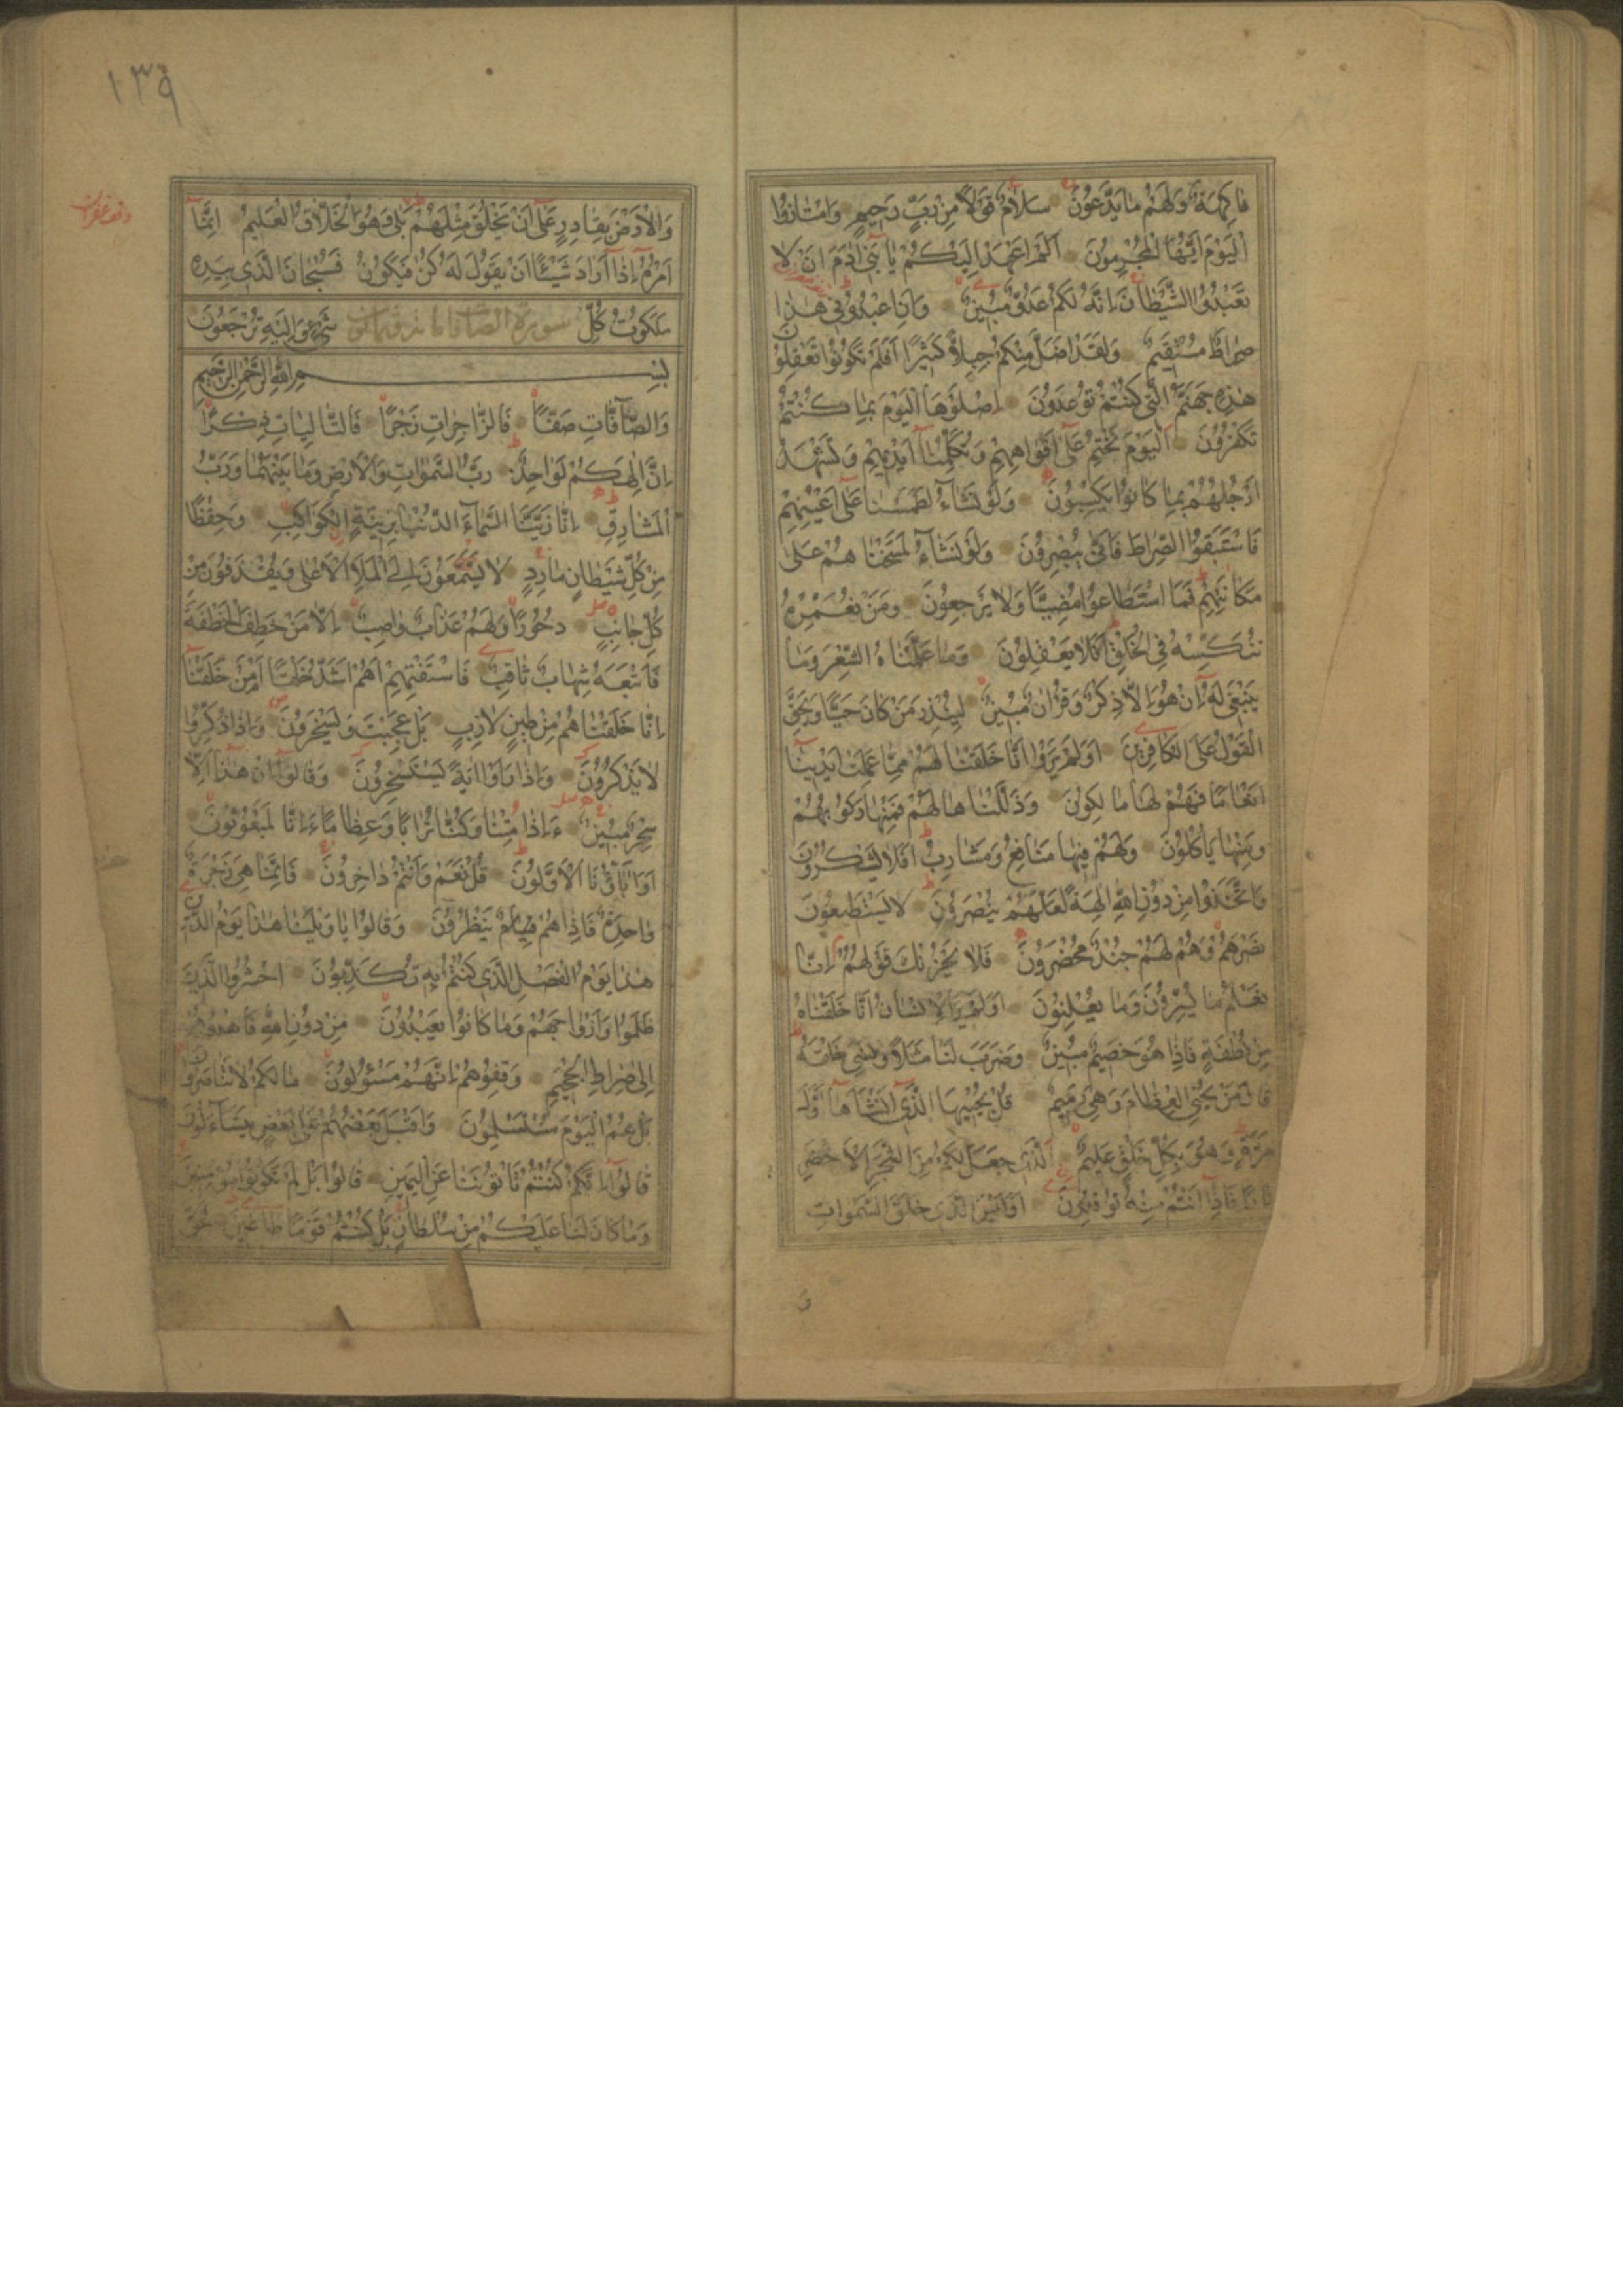 فَاكِهَةٌ وَلَهُمْ مَا يَدَّعُونَ سَلَامٌ قَوْلًا مِنْ رَبٍّ رَحِيمٍ وَامْتَازُوا
الْيَوْمَ اَيُّهَا الْمُجْرِمُونَ اَلَمْ اَعْهَدْ اِلَيْكُمْ يَا بَنِي اٰدَمَ اَنْ لَا
تَعْبُدُوا الشَّيْطَانَ اِنَّهُ لَكُمْ عَدُوٌّ مُبِينٌ وَاَنِ اعْبُدُونِي هٰذَا
صِرَاطٌ مُسْتَقِيمٌ وَلَقَدْ اَضَلَّ مِنْكُمْ جِبِلًّا كَثِيرًا اَفَلَمْ تَكُونُوا تَعْقِلُونَ
هٰذِهِ جَهَنَّمُ الَّتِي كُنْتُمْ تُوعَدُونَ اِصْلَوْهَا الْيَوْمَ بِمَا كُنْتُمْ
تَكْفُرُونَ اَلْيَوْمَ نَخْتِمُ عَلٰى اَفْوَاهِهِمْ وَتُكَلِّمُنَا اَيْدِيهِمْ وَتَشْهَدُ
اَرْجُلُهُمْ بِمَا كَانُوا يَكْسِبُونَ وَلَوْ نَشَاءُ لَطَمَسْنَا عَلٰى اَعْيُنِهِمْ
فَاسْتَبَقُوا الصِّرَاطَ فَاَنّٰى يُبْصِرُونَ وَلَوْ نَشَاءُ لَمَسَخْنَاهُمْ عَلٰى
مَكَانَتِهِمْ فَمَا اسْتَطَاعُوا مُضِيًّا وَلَا يَرْجِعُونَ وَمَنْ نُعَمِّرْهُ
نُنَكِّسْهُ فِي الْخَلْقِ اَفَلَا يَعْقِلُونَ وَمَا عَلَّمْنَاهُ الشِّعْرَ وَمَا
يَنْبَغِي لَهُ اِنْ هُوَ اِلَّا ذِكْرٌ وَقُرْاٰنٌ مُبِينٌ لِيُنْذِرَ مَنْ كَانَ حَيًّا وَيَحِقَّ
الْقَوْلُ عَلَى الْكَافِرِينَ اَوَلَمْ يَرَوْا اَنَّا خَلَقْنَا لَهُمْ مِمَّا عَمِلَتْ اَيْدِينَا
اَنْعَامًا فَهُمْ لَهَا مَالِكُونَ وَذَلَّلْنَاهَا لَهُمْ فَمِنْهَا رَكُوبُهُمْ
وَمِنْهَا يَاْكُلُونَ وَلَهُمْ فِيهَا مَنَافِعُ وَمَشَارِبُ اَفَلَا يَشْكُرُونَ
وَاتَّخَذُوا مِنْ دُونِ اللّٰهِ اٰلِهَةً لَعَلَّهُمْ يُنْصَرُونَ لَا يَسْتَطِيعُونَ
نَصْرَهُمْ وَهُمْ لَهُمْ جُنْدٌ مُحْضَرُونَ فَلَا يَحْزُنْكَ قَوْلُهُمْ اِنَّا
نَعْلَمُ مَا يُسِرُّونَ وَمَا يُعْلِنُونَ اَوَلَمْ يَرَ الْاِنْسَانُ اَنَّا خَلَقْنَاهُ
مِنْ نُطْفَةٍ فَاِذَا هُوَ خَصِيمٌ مُبِينٌ وَضَرَبَ لَنَا مَثَلًا وَنَسِيَ خَلْقَهُ
قَالَ مَنْ يُحْيِي الْعِظَامَ وَهِيَ رَمِيمٌ قُلْ يُحْيِيهَا الَّذِي اَنْشَاَهَا اَوَّلَ
مَرَّةٍ وَهُوَ بِكُلِّ خَلْقٍ عَلِيمٌ اَلَّذِي جَعَلَ لَكُمْ مِنَ الشَّجَرِ الْاَخْضَرِ
نَارًا فَاِذَا اَنْتُمْ مِنْهُ تُوقِدُونَ اَوَلَيْسَ الَّذِي خَلَقَ السَّمٰوَاتِ
و
١٣٩
وَالْاَرْضَ بِقَادِرٍ عَلٰى اَنْ يَخْلُقَ مِثْلَهُمْ بَلٰى وَهُوَ الْخَلَّاقُ الْعَلِيمُ اِنَّمَا
اَمْرُهُ اِذَا اَرَادَ شَيْئًا اَنْ يَقُولَ لَهُ كُنْ فَيَكُونُ فَسُبْحَانَ الَّذِي بِيَدِهِ
مَلَكُوتُ كُلِّ سورة الصافات شَيْءٍ وَاِلَيْهِ تُرْجَعُونَ
بِسْمِ اللّٰهِ الرَّحْمٰنِ الرَّحِيمِ
وَالصَّافَّاتِ صَفًّا فَالزَّاجِرَاتِ زَجْرًا فَالتَّالِيَاتِ ذِكْرًا
اِنَّ اِلٰهَكُمْ لَوَاحِدٌ رَبُّ السَّمٰوَاتِ وَالْاَرْضِ وَمَا بَيْنَهُمَا وَرَبُّ
الْمَشَارِقِ اِنَّا زَيَّنَّا السَّمَاءَ الدُّنْيَا بِزِينَةٍ الْكَوَاكِبِ وَحِفْظًا
مِنْ كُلِّ شَيْطَانٍ مَارِدٍ لَا يَسَّمَّعُونَ اِلَى الْمَلَاِ الْاَعْلٰى وَيُقْذَفُونَ مِنْ
كُلِّ جَانِبٍ دُحُورًا وَلَهُمْ عَذَابٌ وَاصِبٌ اِلَّا مَنْ خَطِفَ الْخَطْفَةَ
فَاَتْبَعَهُ شِهَابٌ ثَاقِبٌ فَاسْتَفْتِهِمْ اَهُمْ اَشَدُّ خَلْقًا اَمْ مَنْ خَلَقْنَا
اِنَّا خَلَقْنَاهُمْ مِنْ طِينٍ لَازِبٍ بَلْ عَجِبْتَ وَيَسْخَرُونَ وَاِذَا ذُكِّرُوا
لَا يَذْكُرُونَ وَاِذَا رَاَوْا اٰيَةً يَسْتَسْخِرُونَ وَقَالُوا اِنْ هٰذَا اِلَّا
سِحْرٌ مُبِينٌ ءَاِذَا مِتْنَا وَكُنَّا تُرَابًا وَعِظَامًا ءَاِنَّا لَمَبْعُوثُونَ
اَوَاٰبَاؤُنَا الْاَوَّلُونَ قُلْ نَعَمْ وَاَنْتُمْ دَاخِرُونَ فَاِنَّمَا هِيَ زَجْرَةٌ
وَاحِدَةٌ فَاِذَا هُمْ قِيَامٌ يَنْظُرُونَ وَقَالُوا يَا وَيْلَنَا هٰذَا يَوْمُ الدِّينِ
هٰذَا يَوْمُ الْفَصْلِ الَّذِي كُنْتُمْ بِهِ تُكَذِّبُونَ اُحْشُرُوا الَّذِينَ
ظَلَمُوا وَاَزْوَاجَهُمْ وَمَا كَانُوا يَعْبُدُونَ مِنْ دُونِ اللّٰهِ فَاهْدُوهُمْ
اِلٰى صِرَاطِ الْجَحِيمِ وَقِفُوهُمْ اِنَّهُمْ مَسْؤُلُونَ مَا لَكُمْ لَا تَنَاصَرُونَ
بَلْ هُمُ الْيَوْمَ مُسْتَسْلِمُونَ وَاَقْبَلَ بَعْضُهُمْ عَلٰى بَعْضٍ يَتَسَاءَلُونَ
قَالُوا اِنَّكُمْ كُنْتُمْ تَاْتُونَنَا عَنِ الْيَمِينِ قَالُوا بَلْ لَمْ تَكُونُوا مُؤْمِنِينَ
وَمَا كَانَ لَنَا عَلَيْكُمْ مِنْ سُلْطَانٍ بَلْ كُنْتُمْ قَوْمًا طَاغِينَ فَحَقَّ